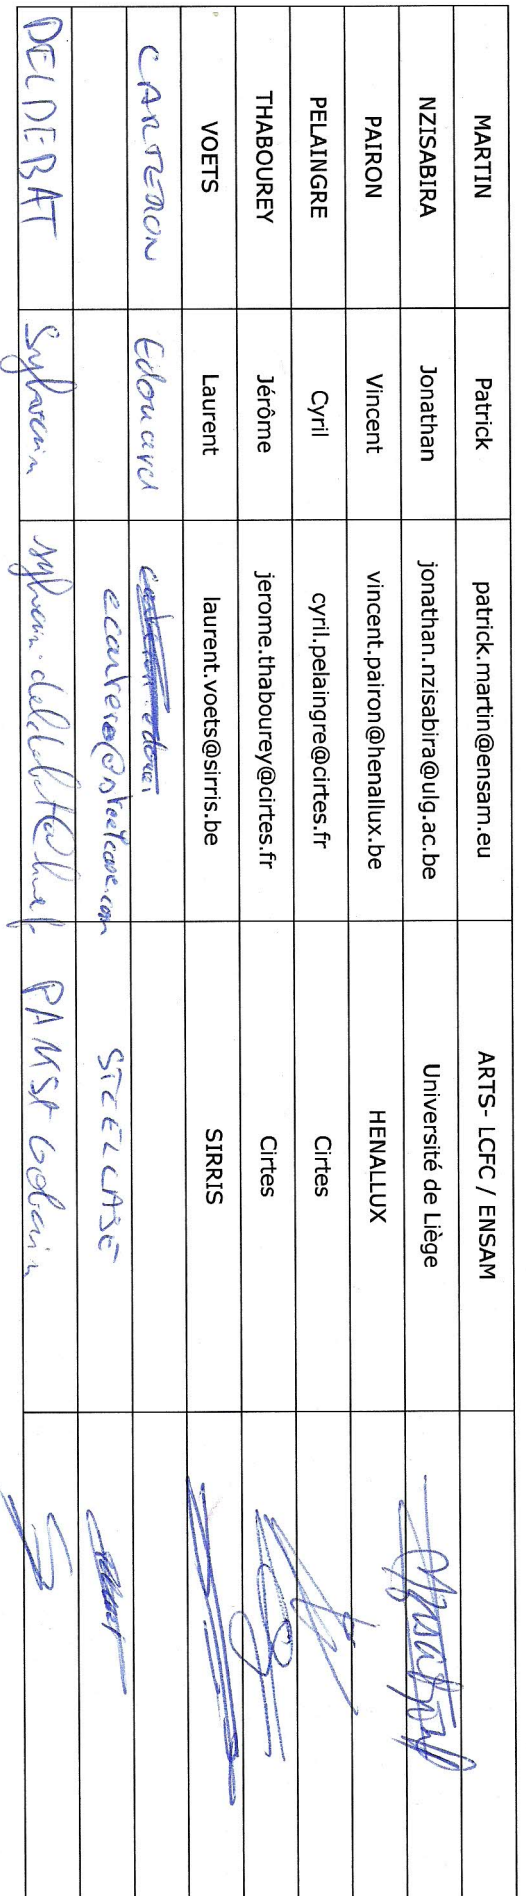 MARTIN Patrick patrick.martin@ensam.eu ARTS- LCFC / ENSAM
NZISABIRA Jonathan jonathan.nzisabira@ulg.ac.be Université de Liège
PAIRON Vincent vincent.pairon@henallux.be HENALLUX
PELAINGRE Cyril cyril.pelaingre@cirtes.fr Cirtes
THABOUREY Jérôme jerome.thabourey@cirtes.fr Cirtes
VOETS Laurent laurent.voets@sirris.be SIRRIS
CARTERON Edouard
STEELCASE
DELDEBAT Sylvain PAM St Gobain